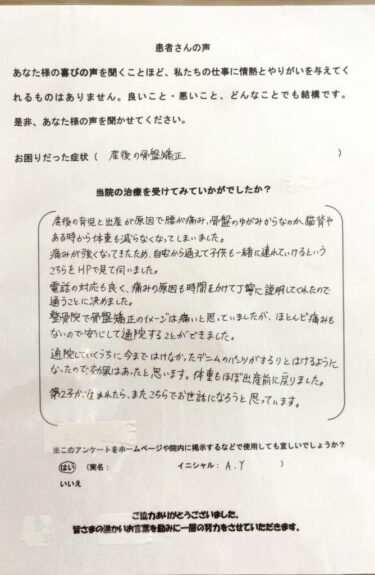 患者さんの声
あなた様の喜びの声を聞くことほど、私たちの仕事に情熱とやりがいを与えてく
れるものはありません。良いこと・悪いこと、どんなことでも結構です。
是非、あなた様の声を聞かせてください。
お困りだった症状( 産後の骨盤矯正 )
当院の治療を受けてみていかがでしたか?
産後の育児と出産が原因で腰が痛み、骨盤のゆがみからなのか、猫背や
ある時から体重も減らなくなってしまいました。
痛みが強くなってきたため、自宅から通えて子供も一緒に連れていけるという
こちらをHPで見て伺いました。
電話の対応も良く、痛みの原因も時間をかけて丁寧に説明してくれたので
通うことに決めました。
整骨院で骨盤矯正のイメージは痛いと思っていましたが、ほとんど痛みも
ないので安心して通院することができました。
通院していくうちに今まではけなかったデニムのパンツがするりとはけるように
なったので効果はあったと思います。体重もほぼ出産前に戻りました。
第2子が生まれたら、またこちらでお世話になろうと思っています。
※このアンケートをホームページや院内に掲示するなどで使用しても宜しいでしょうか?
はい (実名: イニシャル: A.Y )
いいえ
ご協力ありがとうございました。
皆さまの温かいお言葉を励みに一層の努力をさせていただきます。